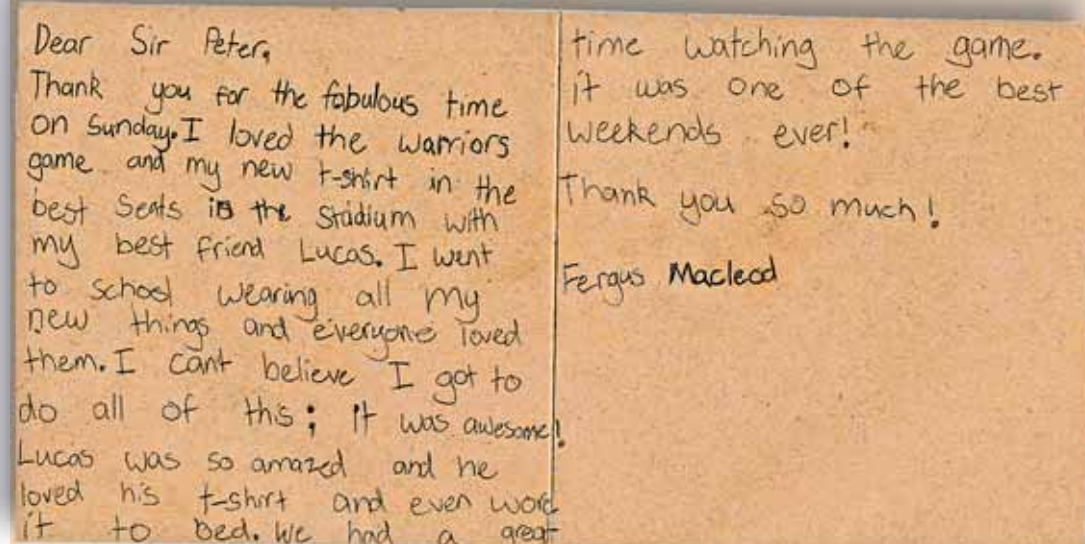 Dear Sir Peter,
Thank you for the fabulous time
on Sunday. I loved the warriors
game and my new t-shirt in the
best Seats in the Stadium with
my best friend Lucas. I went
to school wearing all my
new things and everyone loved
them. I cant believe I got to
do all of this; it was awesome!
Lucas was so amazed and he
loved his t-shirt and even word
it to bed. We had a great
time watching the game.
it was one of the best
weekends ever!
Thank you so much!
Fergus Macleod